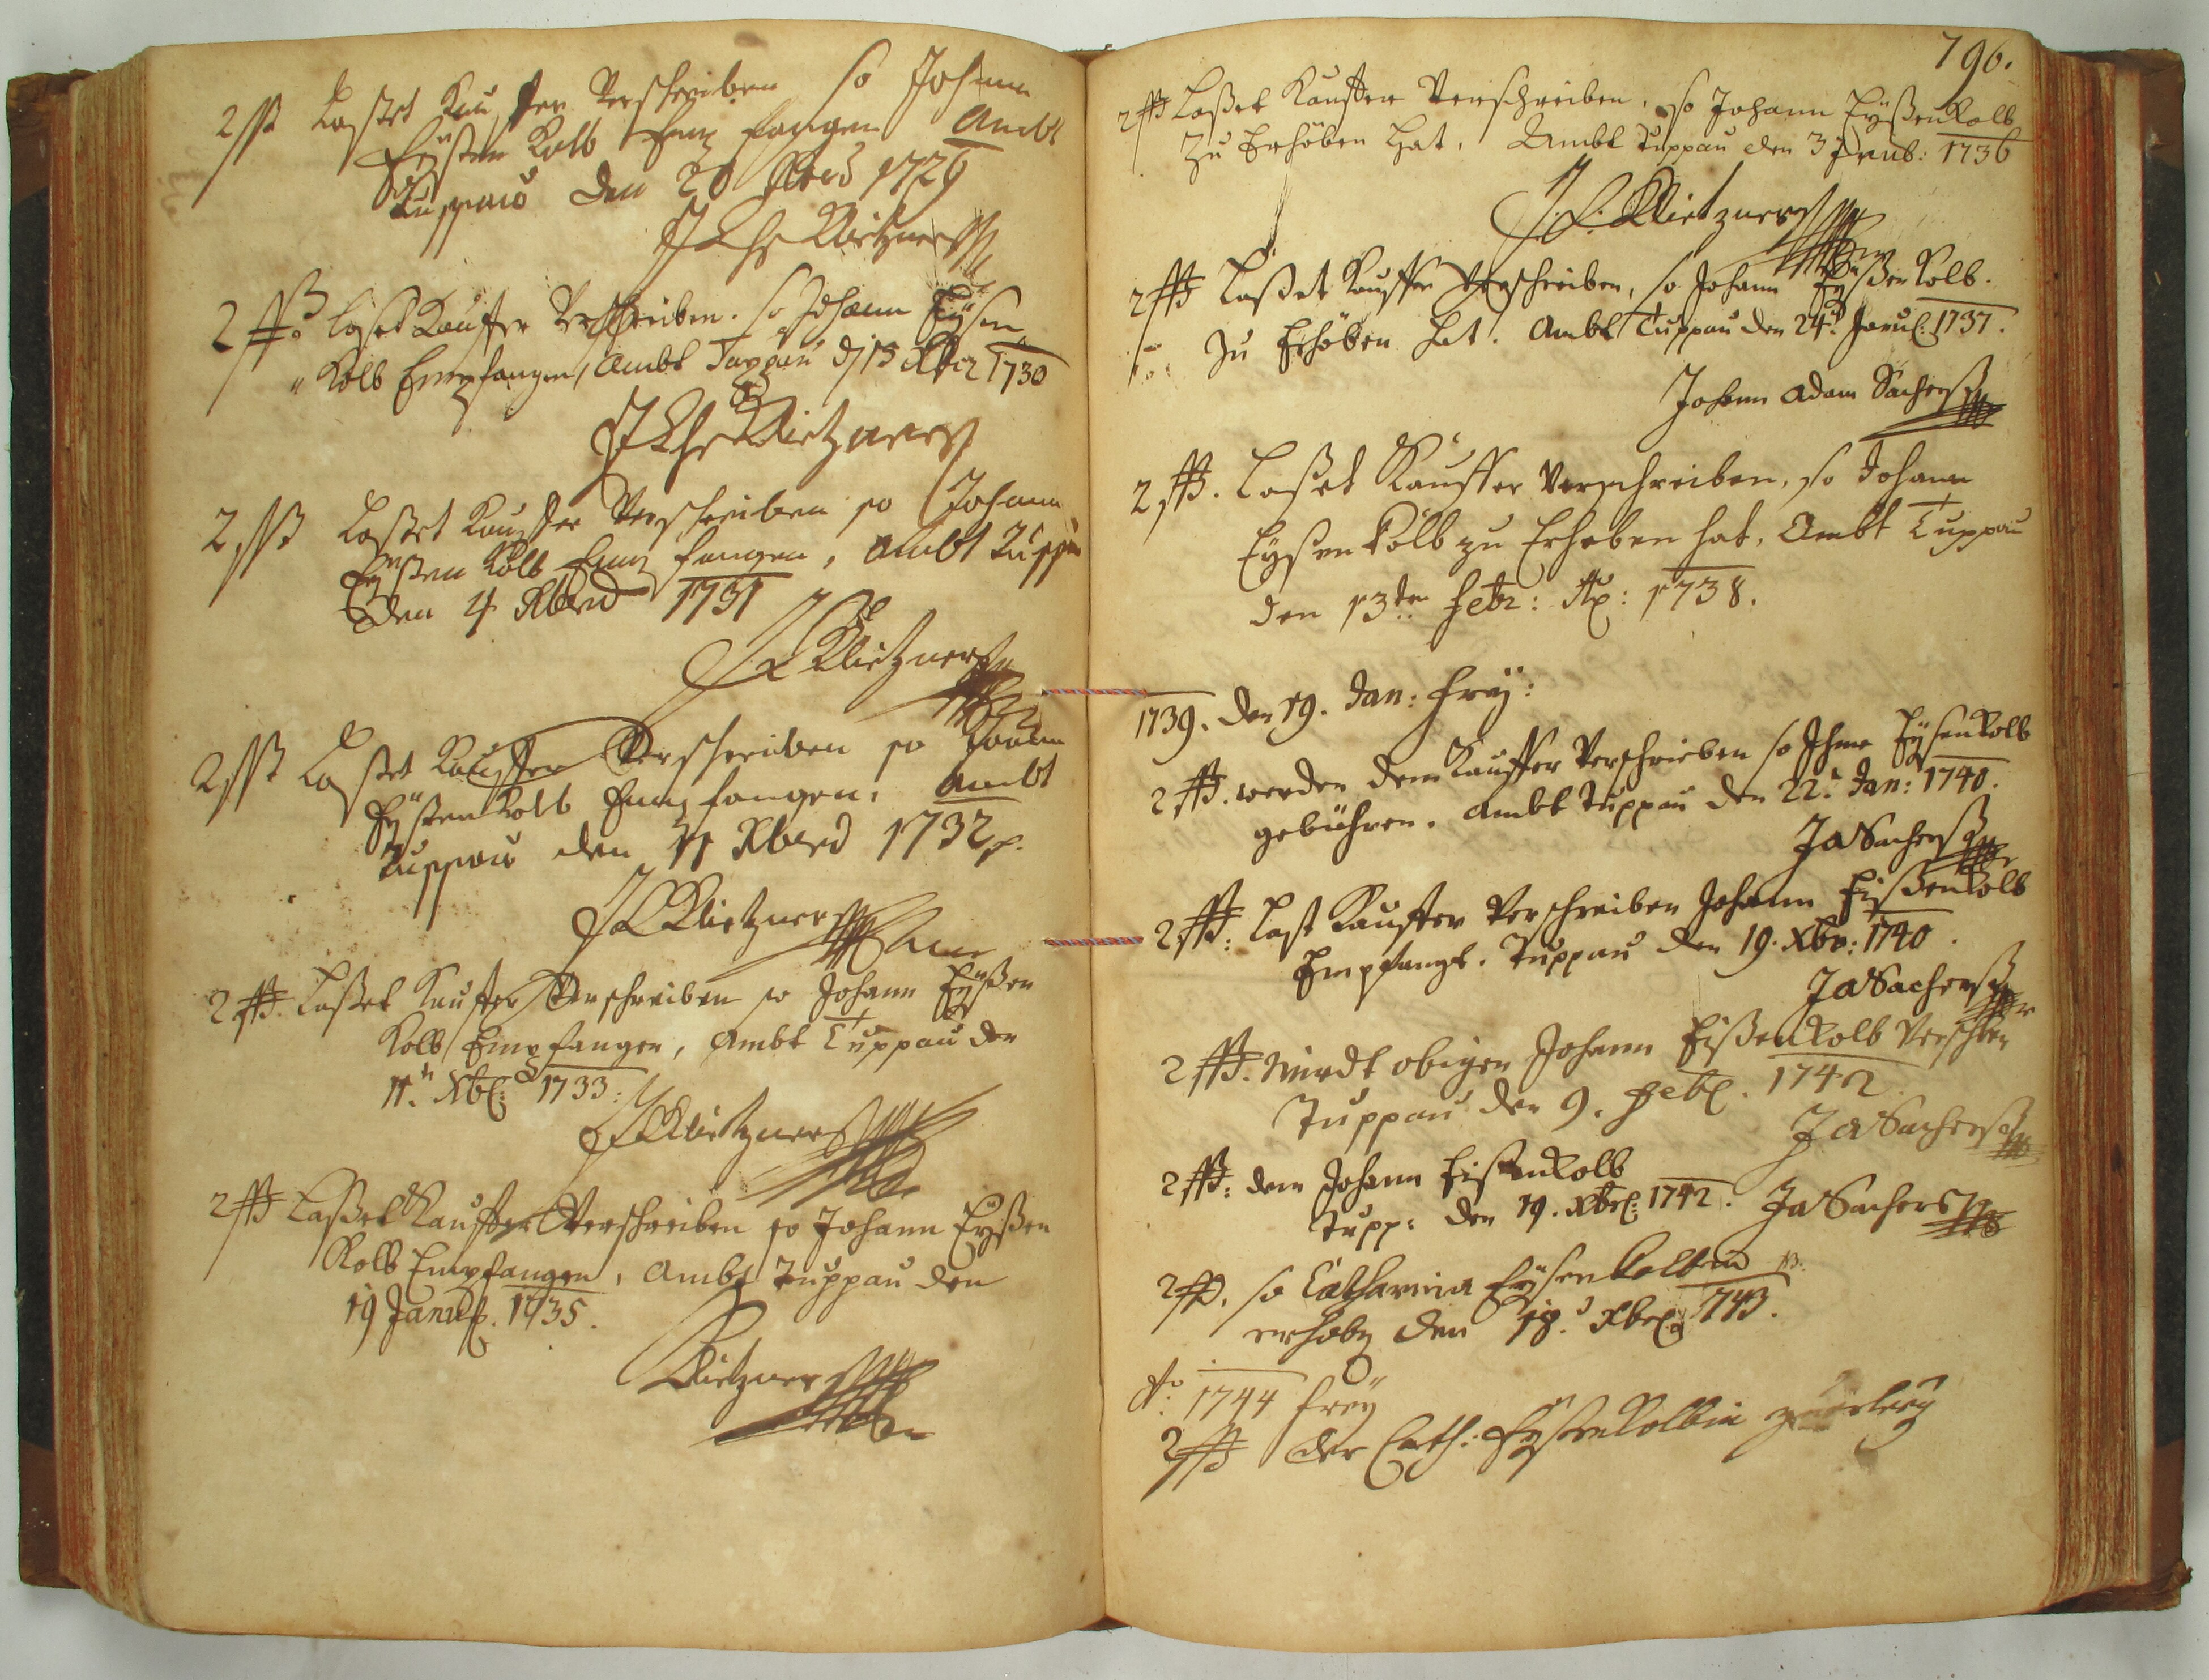 2 ßß Lasset Kauffer Verschreiben so Johann
Eyßen Kolb Empfangen Ambt
Tuppau den 20 Xbris 1729
J Chr Klietzner
2 ßß Laset Kauffer Verschreiben. so Johann Eysen
Kolb Empfangen, Ambt Tuppau d 15 Xber 1730
J Chr Klietzner
2 ßß Lasset Kauffer Verschreiben so Johann
Eyßen Kolb Empfangen, Ambt Tuppau
den 4 Xbris 1731
J C Klietzner
2 ßß Lasset Kauffer Verschreiben so Johann
Eyßenkolb Empfangen, Ambt
Tuppau den 11 Xbris 1732
J C Klietzner
2 ßß. Laßet Kauffer Verschreiben so Johann Eyßen
Kolb Empfangen, Ambt Tuppau den
11. Xbr: 1733:
J C Klietzner
2 ßß Laßet Kauffer Verschreiben so Johann Eyßen
Kolb Empfangen, Ambt Tuppau den
19 Januar. 1735.
Klietzner
796.
2 ßß Laßet Kauffer Verschreiben, so Johann Eyßenkolb
zu Erhöben hat. Ambt Tuppau den 3 1736
J. C. Klietzner
2 ßß Laßet Kauffer Verschreiben, so Johann Eyßenkolb.
zu Erhöben hat. Ambt Tuppau den 24 Januar. 1737.
Johann Adam Sacher
2 ßß. Laßet Kauffer Verschreiben, so Johann
Eyßenkolb zu Erheben hat, Ambt Tuppau
den 13ten Febr: Ao: 1738.
1739. den 19. Jan: frey:
2 ßß. werden dem Kauffer Verschrieben so Ihme Eysenkolb
gebühren. Ambt Tuppau den 22. Jan: 1740.
JASacher
2 ßß: Last Kauffer Verschreiben Johann Eißenkolb
Empfangt. Tuppau den 19. Xbr: 1740.
JASacher
2 ßß. wirdt obigen Johann Eißenkolb Verschrieben
Tuppau den 9. Febr. 1742
JASacher
2 ßß: dem Johann Eißenkolb
Tupp: den 19. Xbr: 1742. JASacher
2 ßß. so Catharina Eysenkolbin
erhobn den 18. Xbr: 1743.
Ao: 1744 frey
2 ßß der Cath: Eyßenkolbin